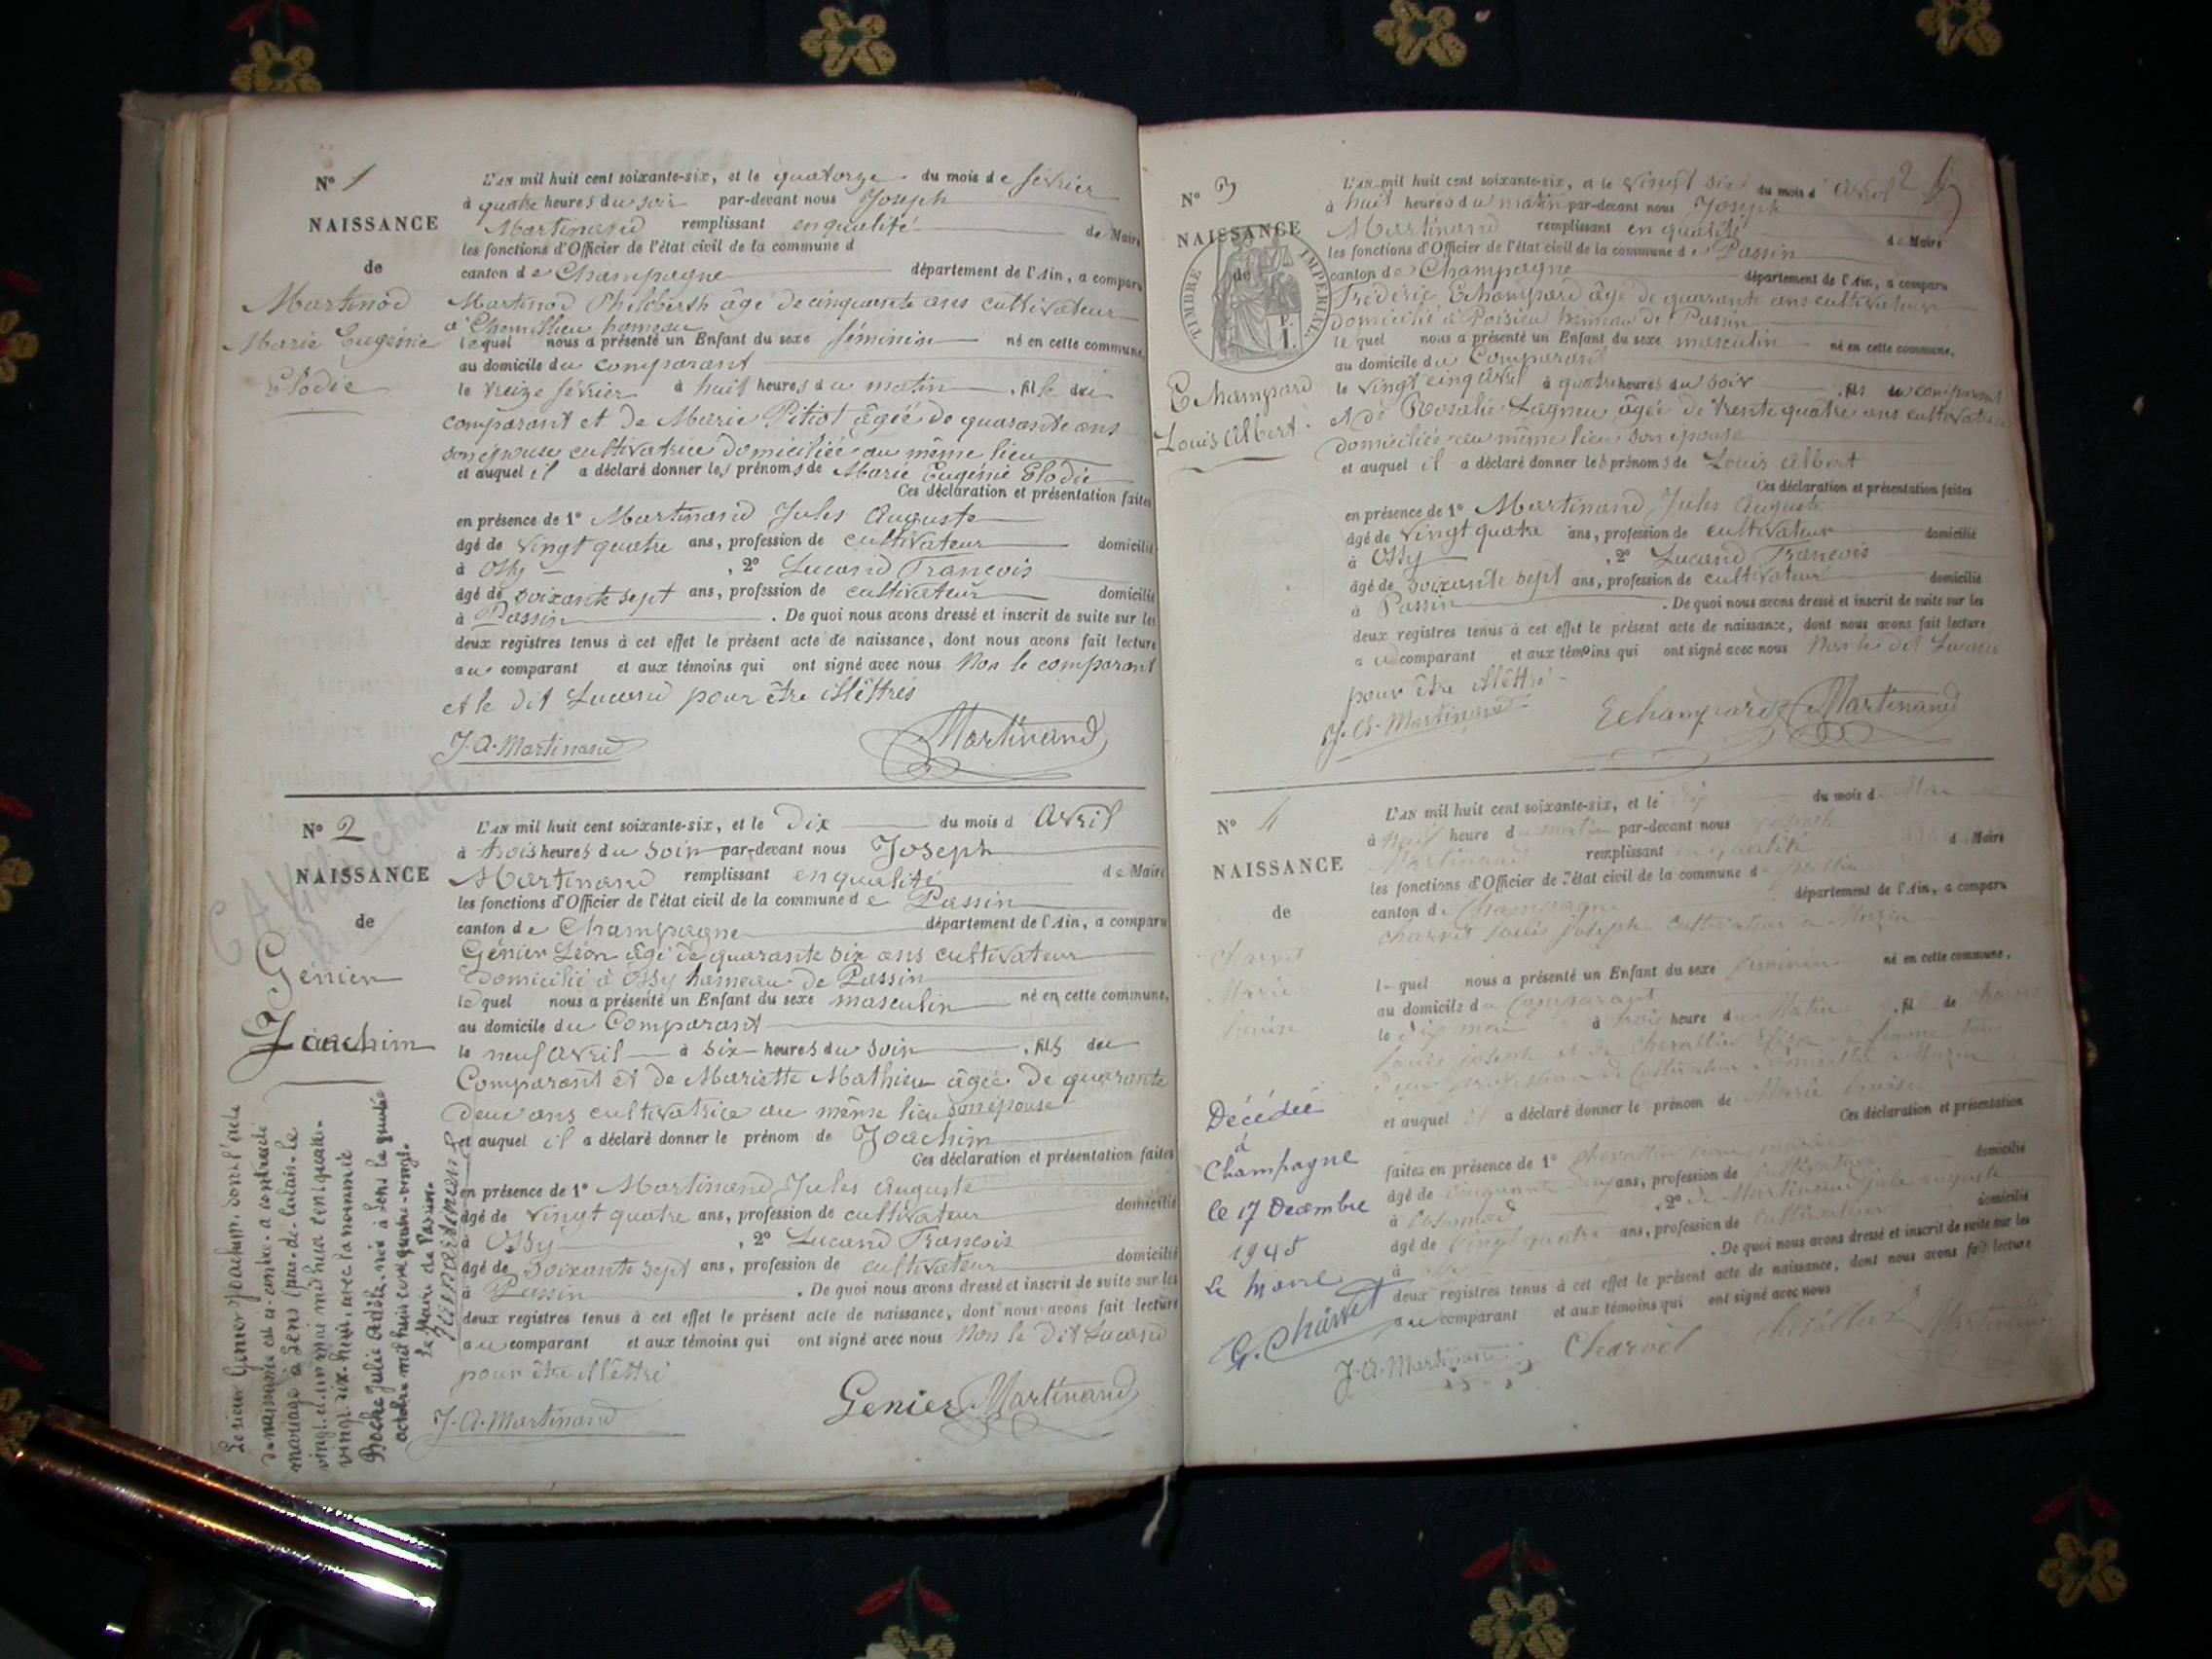 N° 1
NAISSANCE
de
Martinod
Marie Eugénie
Elodie
L'AN mil huit cent soixante-six, et le quatorze du mois de février
à quatre heures du soir par-devant nous Joseph
Martinand remplissant en qualité de Maire
les fonctions d'Officier de l'état civil de la commune d
canton de Champagne département de l'Ain, a comparu
Martinod Philiberth âgé de cinquante ans cultivateur
à hameau
lequel nous a présenté un Enfant du sexe féminin né en cette commune,
au domicile du comparant
le treize février à huit heures du matin, fille du
comparant et de Marie Pitiot âgée de quarante ans
son épouse cultivatrice domiciliée au même lieu
et auquel il a déclaré donner les prénoms de Marie Eugénie Elodie
Ces déclaration et présentation faites
en présence de 1° Martinand Jules Auguste
âgé de vingt quatre ans, profession de cultivateur domicilié
à Ossy, 2° Lucand François
âgé de soixante sept ans, profession de cultivateur domicilié
à Passin. De quoi nous avons dressé et inscrit de suite sur les
deux registres tenus à cet effet le présent acte de naissance, dont nous avons fait lecture
au comparant et aux témoins qui ont signé avec nous Non le comparant
et le dit Lucand pour être illêttrés
J. A. Martinand Martinand
N° 2
NAISSANCE
de
Génier
Joachim
L'AN mil huit cent soixante-six, et le Dix du mois d Avril
à trois heures du soir par-devant nous Joseph
Martinand remplissant en qualité de Maire
les fonctions d'Officier de l'état civil de la commune de Passin
canton de Champagne département de l'Ain, a comparu
Génier Léon âgé de quarante six ans cultivateur
domicilié à Ossy hameau de Passin
lequel nous a présenté un Enfant du sexe masculin né en cette commune,
au domicile du Comparant
le neuf Avril à six heures du soir, fils du
Comparant et de Mariette Mathieu âgée de quarante
deux ans cultivatrice au même lieu son épouse
et auquel il a déclaré donner le prénom de Joachim
Ces déclaration et présentation faites
en présence de 1° Martinand Jules Auguste
âgé de vingt quatre ans, profession de cultivateur domicilié
à Ossy, 2° Lucand François
âgé de soixante sept ans, profession de cultivateur domicilié
à Passin. De quoi nous avons dressé et inscrit de suite sur les
deux registres tenus à cet effet le présent acte de naissance, dont nous avons fait lecture
au comparant et aux témoins qui ont signé avec nous Non le dit Lucand
pour être illêttré
J. A. Martinand Genier Martinand
Le sieur Genier Joachim, dont l'acte
de naissance est ci-contre, a contracté
mariage à Lens (pas-de-Calais) le
vingt-et-un mai mil neuf cent
vingt-dix-huit, avec la nommée
Boche Julie Adèle, née à Lens le quatre
octobre mil huit cent quatre-vingt.
Le Maire de Passin.
2
N° 3
NAISSANCE
de
TIMBRE IMPERIAL
Echampard
Louis Albert
L'AN mil huit cent soixante-six, et le vingt six du mois d Avril
à huit heures du matin par-devant nous Joseph
Martinand remplissant en qualité de Maire
les fonctions d'Officier de l'état civil de la commune de Passin
canton de Champagne département de l'Ain, a comparu
Fréderic Echampard âgé de quarante ans cultivateur
domicilié à Poisieu hameau de Passin
lequel nous a présenté un Enfant du sexe masculin né en cette commune,
au domicile du Comparant
le vingt cinq Avril à quatre heures du soir, fils du comparant
et de Rosalie Lagneu âgée de trente quatre ans cultivatrice
domiciliée au même lieu son épouse
et auquel il a déclaré donner les prénoms de Louis Albert
Ces déclaration et présentation faites
en présence de 1° Martinand Jules Auguste
âgé de vingt quatre ans, profession de cultivateur domicilié
à Ossy, 2° Lucand François
âgé de soixante sept ans, profession de cultivateur domicilié
à Passin. De quoi nous avons dressé et inscrit de suite sur les
deux registres tenus à cet effet le présent acte de naissance, dont nous avons fait lecture
au comparant et aux témoins qui ont signé avec nous Non le dit Lucand
pour être illêttré
J. A. Martinand Echampard Martinand
N° 4
NAISSANCE
de
Charvet
Marie
L'AN mil huit cent soixante-six, et le du mois d Mai
à neuf heure du matin par-devant nous Joseph
Martinand remplissant en qualité d Maire
les fonctions d'Officier de l'état civil de la commune de
canton de Champagne département de l'Ain, a comparu
Charvet Louis Joseph cultivateur à
lequel nous a présenté un Enfant du sexe féminin né en cette commune,
au domicile du Comparant
le dix mai à trois heure du Matin, fille de Charvet
Louis Joseph et de Chevallier
profession de cultivateur
et auquel il a déclaré donner le prénom de Marie Louise
Ces déclaration et présentation
faites en présence de 1° domicilié
âgé de cinquante ans, profession de cultivateur
à, 2° Martinand Jule Auguste
âgé de vingt quatre ans, profession de cultivateur domicilié
à. De quoi nous avons dressé et inscrit de suite sur les
deux registres tenus à cet effet le présent acte de naissance, dont nous avons fait lecture
au comparant et aux témoins qui ont signé avec nous
J. A. Martinand Charvet Chevallier Martinand
Décédée
à
Champagne
le 17 Décembre
1945
Le Maire
G. Charvet